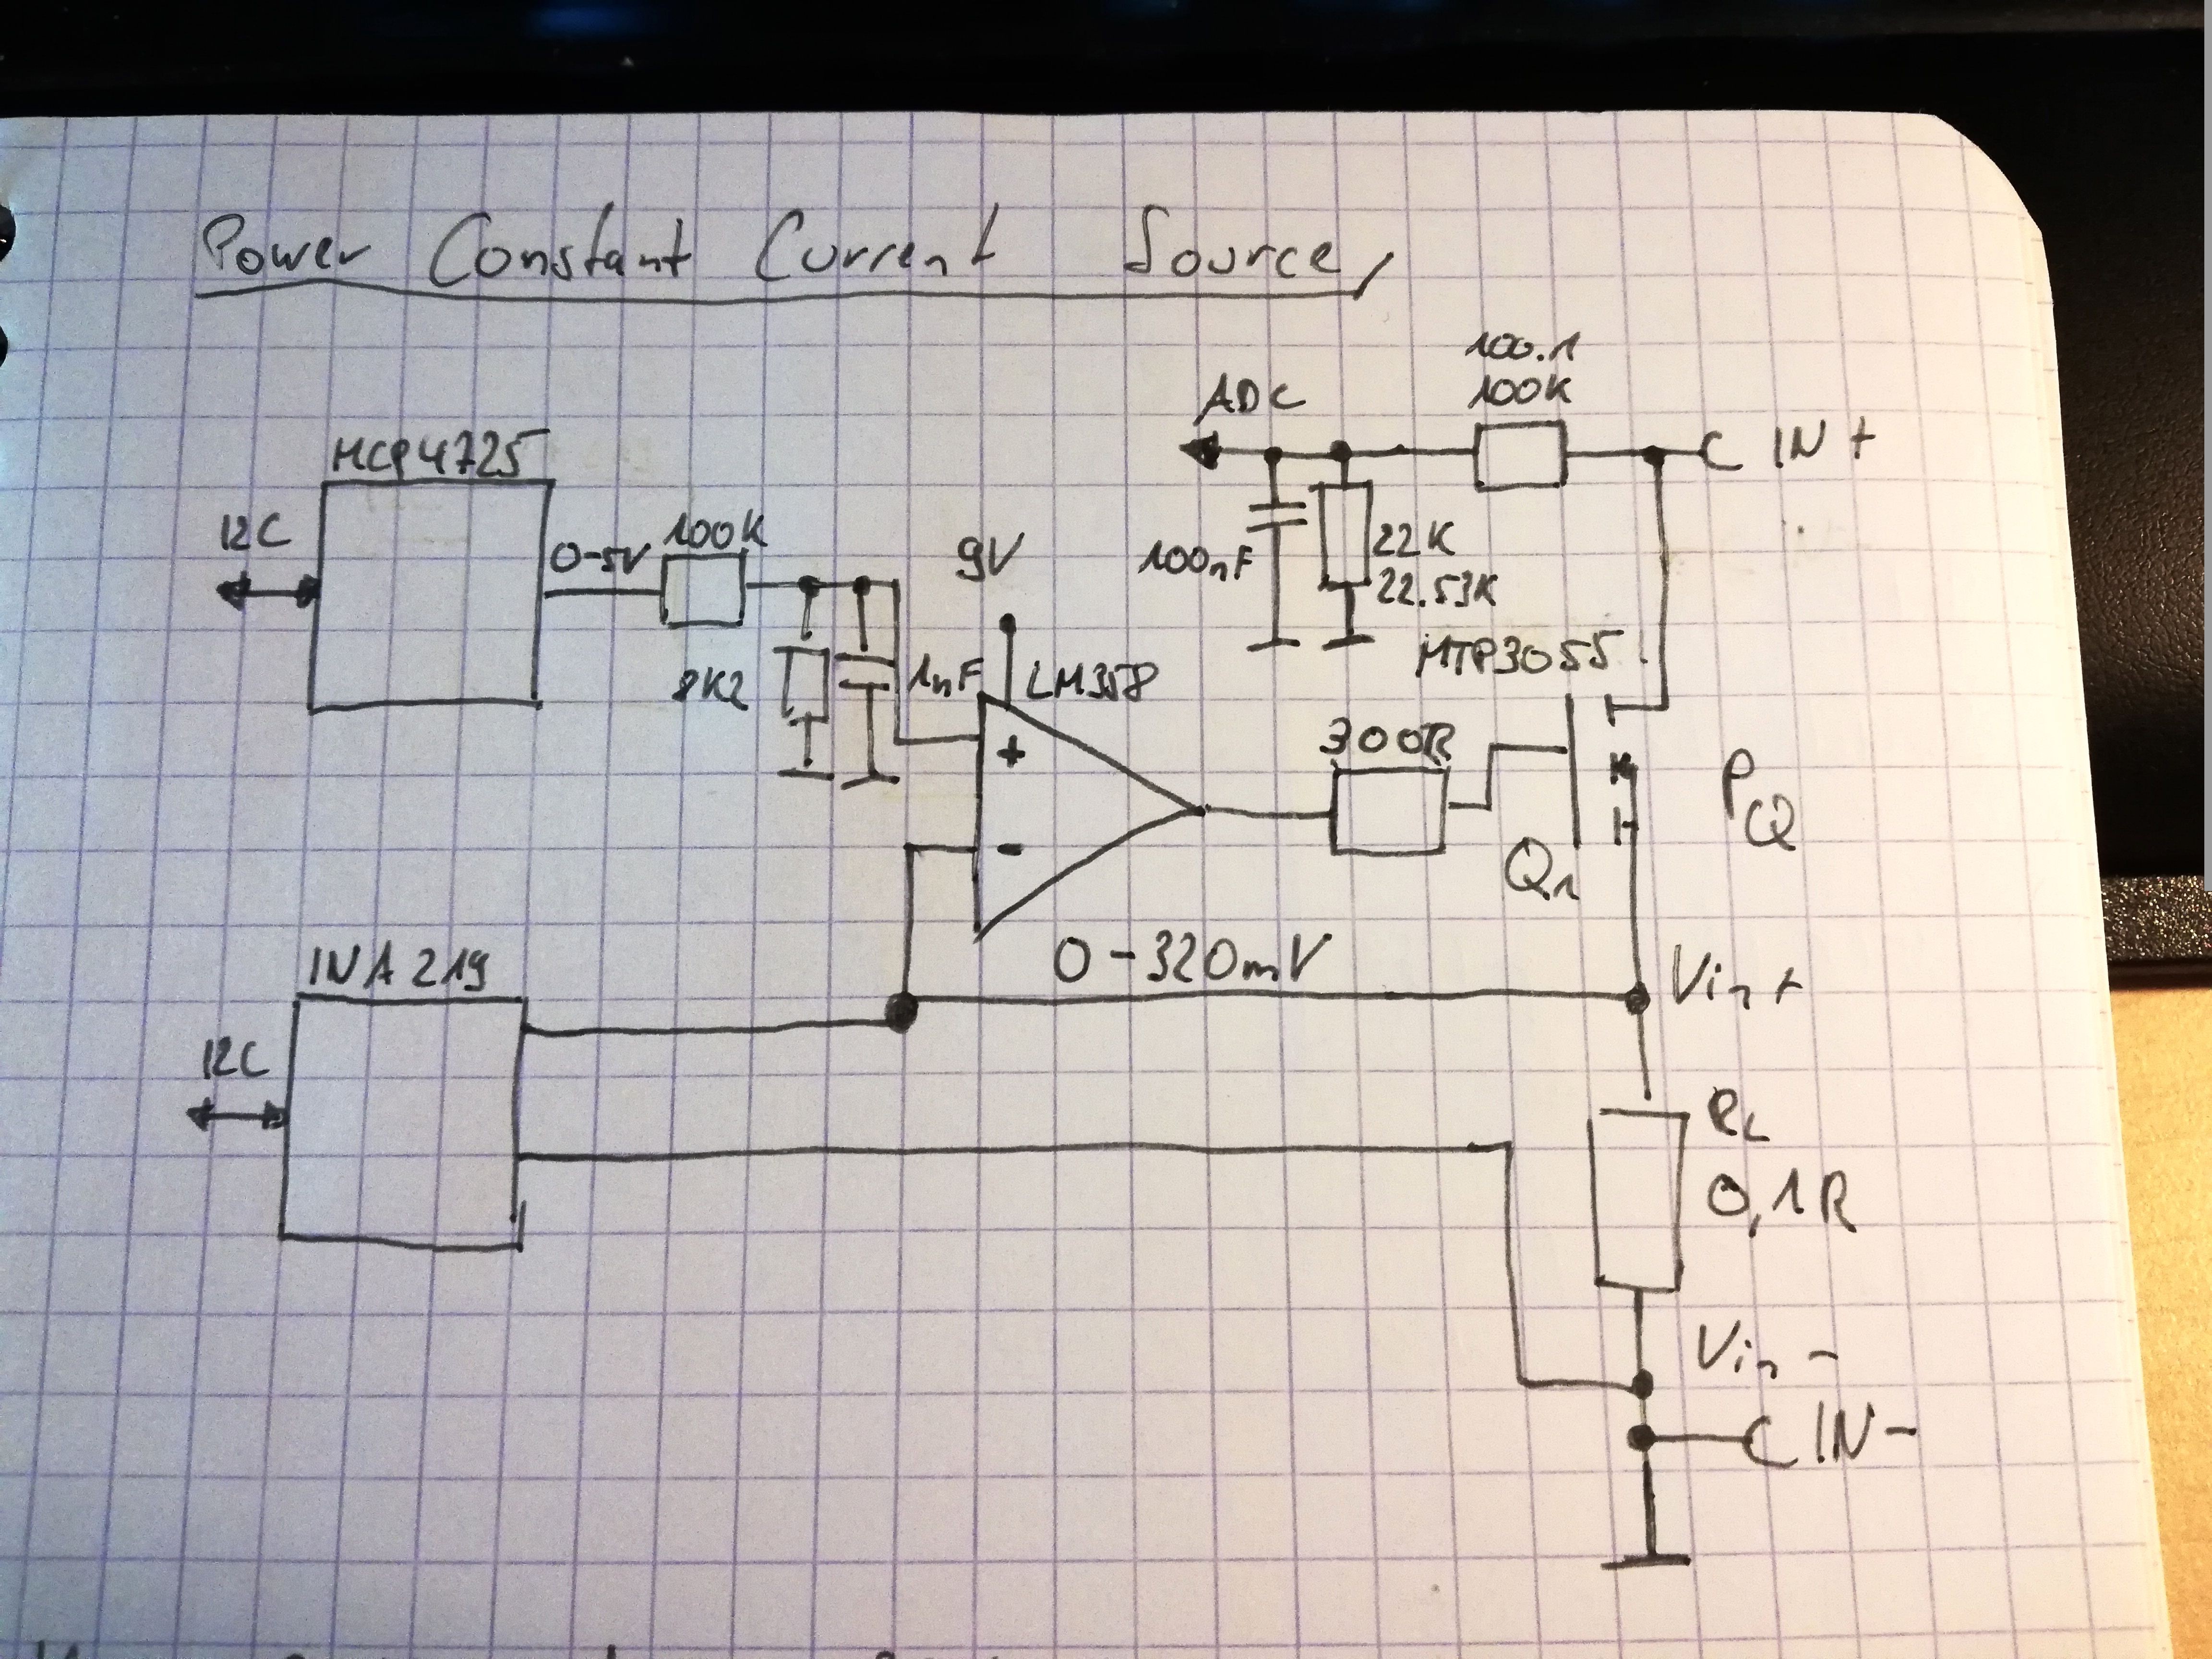 Power Constant Current Source
100.1
100K
ADC
IN+
MCP4725
I2C
0-5V
100K
9V
100nF
22K
22.53K
MTP3055
8K2
1nF
LM358
+
300R
PQ
-
Q1
0-320mV
Vin+
INA219
I2C
RL
0,1R
Vin-
IN-